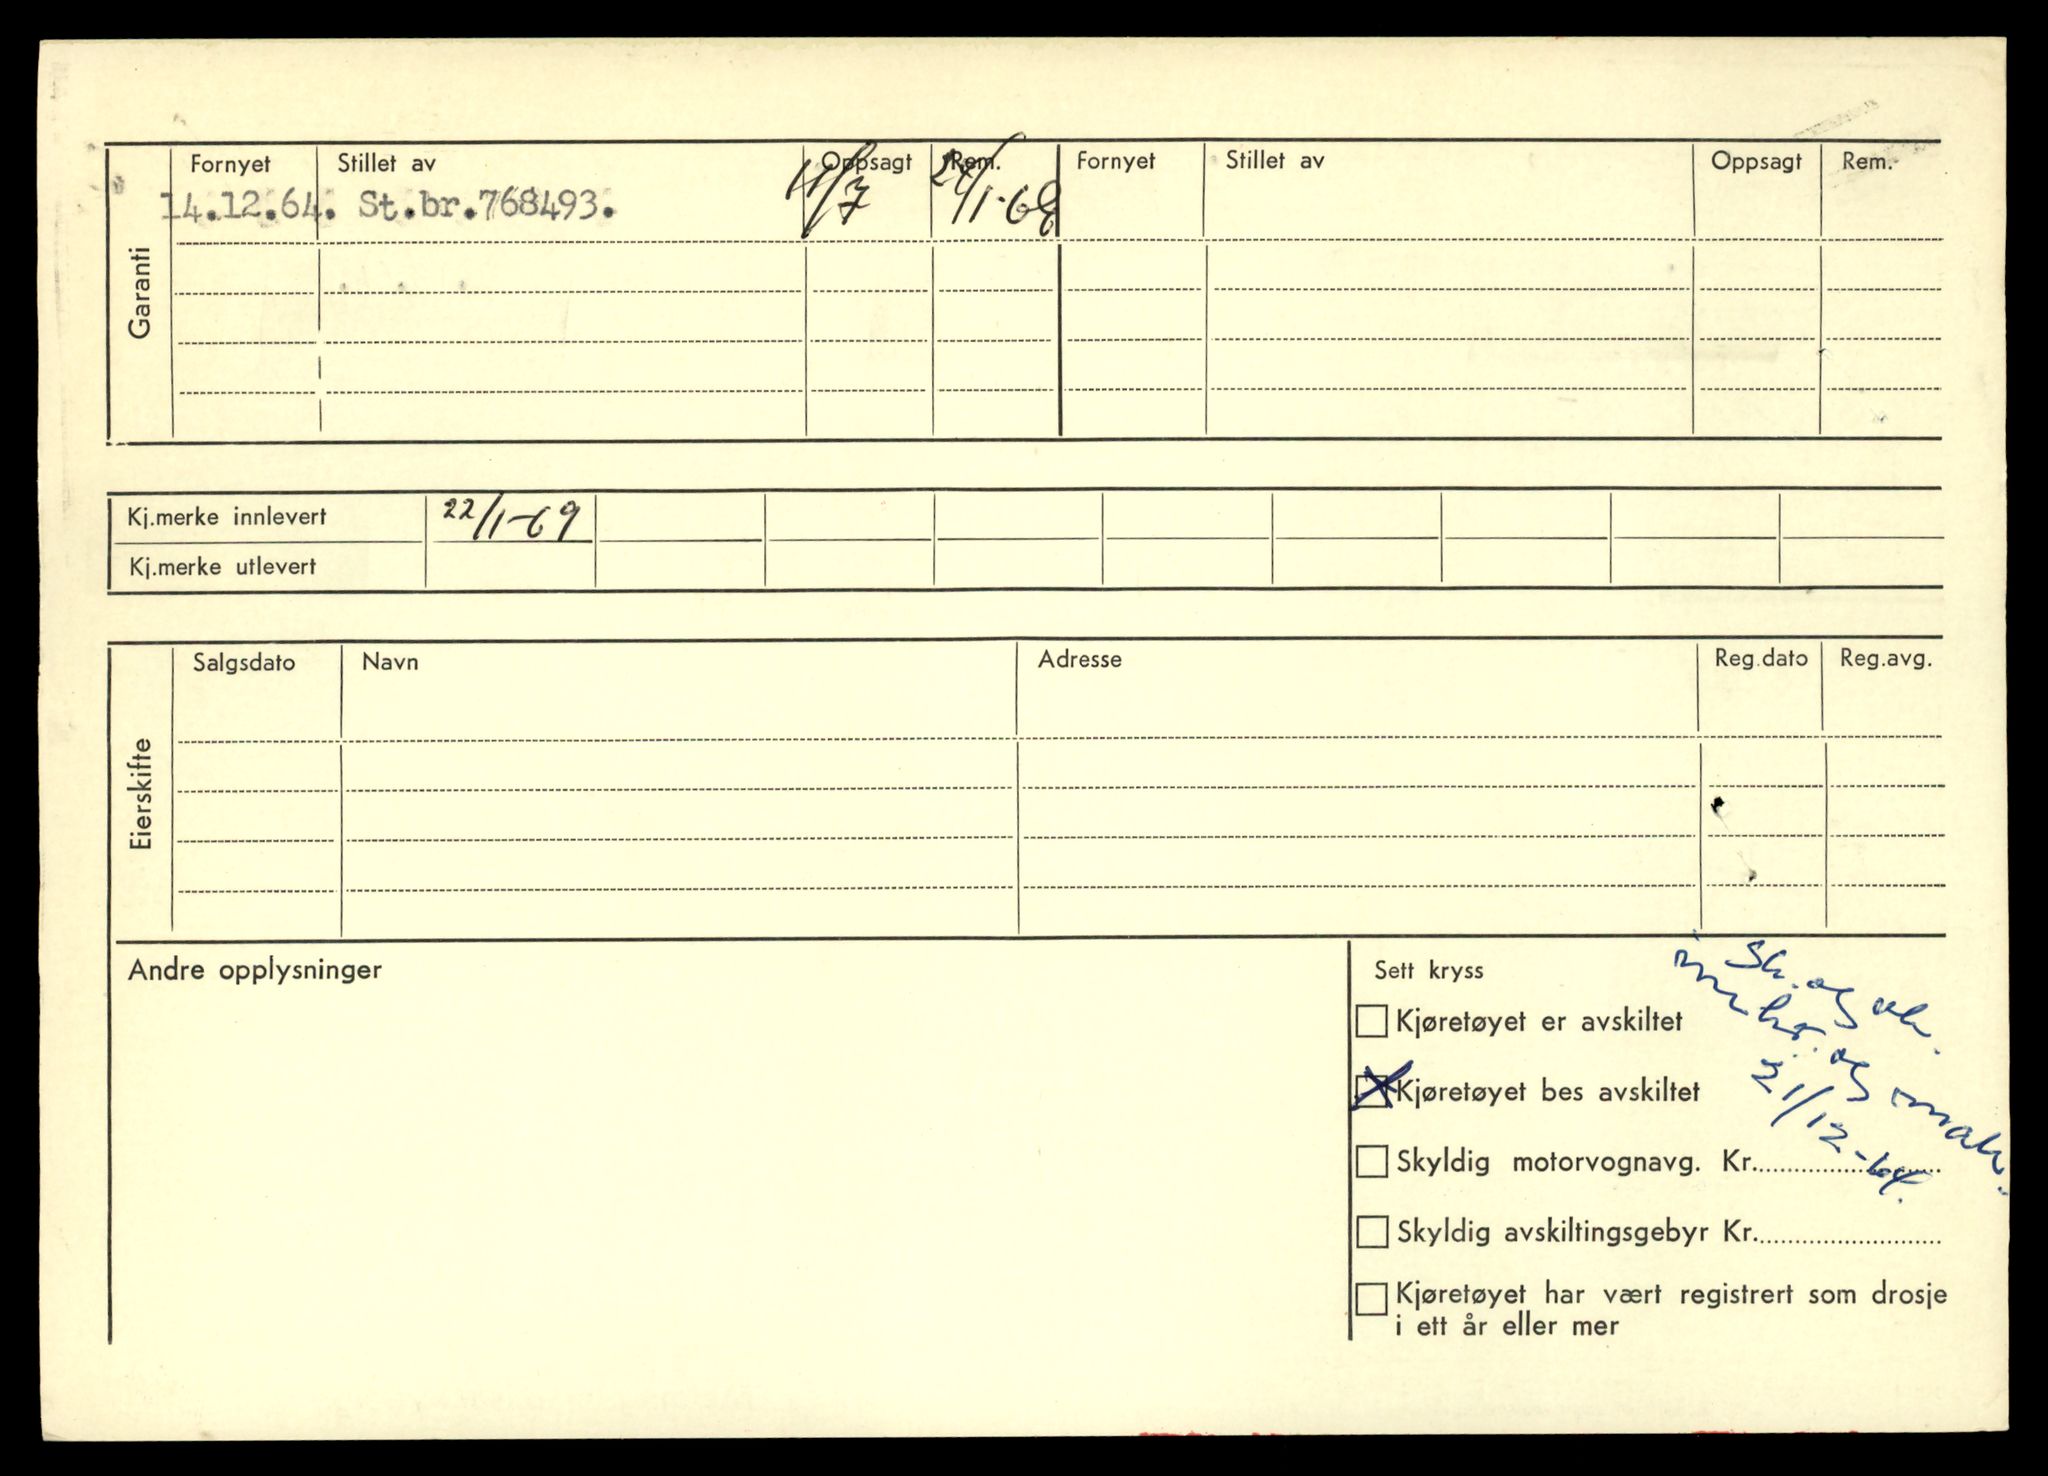 Garanti
Fornyet Stillet av Oppsagt Rem. Fornyet Stillet av Oppsagt Rem.
14.12.64. St.br.768493. 11/7
Kj.merke innlevert 22/1-69
Kj.merke utlevert
Eierskifte
Salgsdato Navn Adresse Reg.dato Reg.avg.
Andre opplysninger
Sett kryss
Kjøretøyet er avskiltet
X Kjøretøyet bes avskiltet
Skyldig motorvognavg. Kr.
Skyldig avskiltingsgebyr Kr.
Kjøretøyet har vært registrert som drosje
i ett år eller mer
og
og
21/12-64.